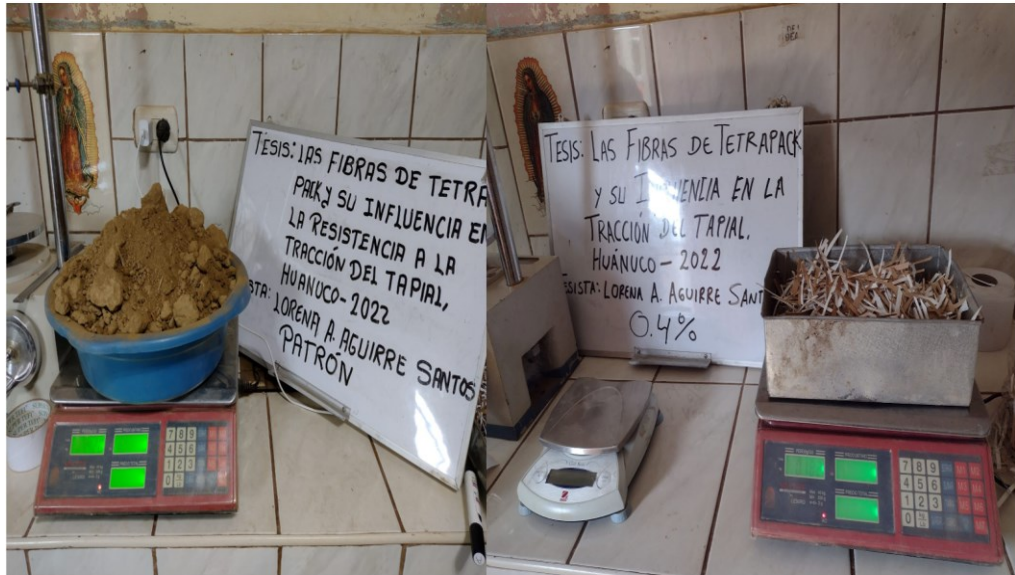 TESIS: LAS FIBRAS DE TETRA
PACK Y SU INFLUENCIA EN
LA RESISTENCIA A LA
TRACCIÓN DEL TAPIAL,
HUANUCO-2022
ISTA: LORENA A. AGUIRRE SANTOS
PATRÓN
7 8 9
4 5 6
1 2 3
0
TESIS: LAS FIBRAS DE TETRAPACK
Y SU INFLUENCIA EN LA
TRACCIÓN DEL TAPIAL.
HUÁNUCO-2022
ESISTA: LORENA A. AGUIRRE SANT
0.4%
7 8 9
4 5 6
1 2 3
0